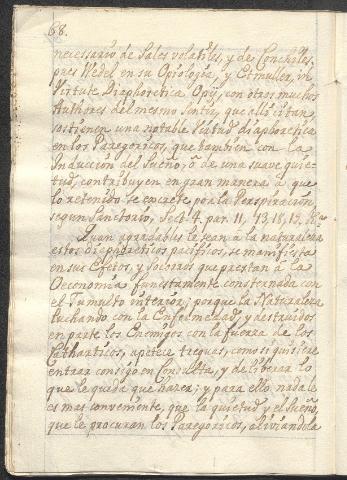 68.
necessario de Sales volatiles, y de Conchilles,
pues Wedel en su Opiologia, y Etmuller, in
Virtute Diaphoretica Opij, con otros muchos
Authores del mismo sentir, que alli citan,
sostienen una notable virtud diaphoretica
en los Paregoricos, que tambien con la
Induccion del Sueño, ò de una suave quie-
tud, contribuyen en gran manera à que
lo retenido se excrete por la Perspiracion
segun Sanctorio, Sect. 4. par. 11, 13. 18. 19.
Quan agradables le sean à la naturaleza
estos diaphoreticos pacificos, se manifiesta
en sus Efetos, y Socorros que prestan à la
Oeconomia funestamente consternada con
el Tumulto interior; porque la Naturaleza
luchando con la Enfermedad, y destruidos
en parte los Enemigos con la fuerza de los
Cathárticos, apetece treguas, como si quisiere
entrar consigo en Consulta, y deliberar lo
que le queda que hazer; y para ello nada le
es mas conveniente, que la quietud y el Sueño,
que le procuran los Paregoricos, aliviandola